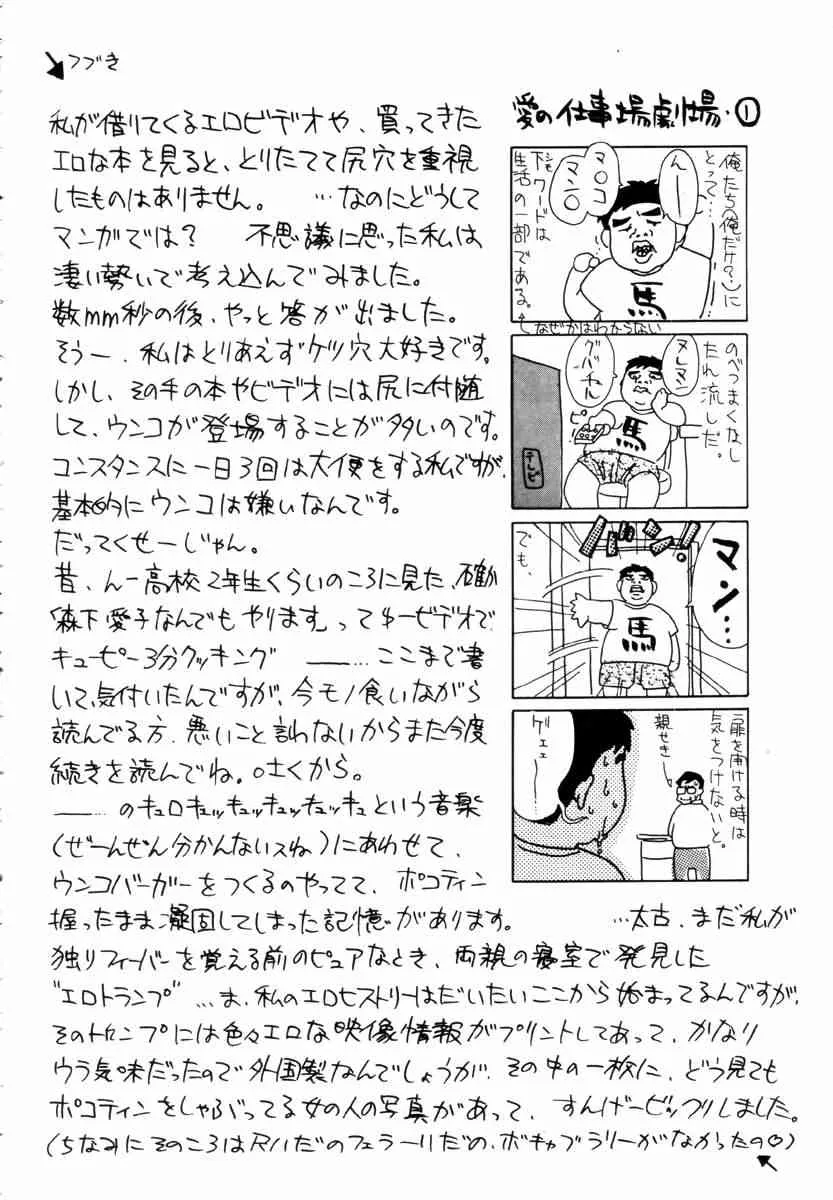 つづき
私が借りてくるエロビデオや、買ってきた
エロな本を見ると、とりたてて尻穴を重視
したものはありません。 …なのにどうして
マンガでは? 不思議に思った私は
凄い勢いで考え込んでみました。
数mm秒の後、やっと答が出ました。
そうー、私はとりあえずケツ穴大好きです。
しかし、その手の本やビデオには尻に付随
して、ウンコが登場することが多いのです。
コンスタンスに一日3回は大便をする私ですが、
基本的にウンコは嫌いなんです。
だってくせーじゃん。
昔、んー高校2年生くらいのころに見た、確か
「森下愛子なんでもやります」って
ビデオで
キューピー3分クッキング ――…ここまで書
いて気付いたんですが、今モノ食いながら
読んでる方、悪いこと言わないからまた今度
続きを読んでね。吐くから。
――…のキュロキュッキュッキュッキュッキュという音楽
(ぜーんぜん分かんないスね)にあわせて、
ウンコバーガーをつくるのやってて、ポコティン
握ったまま凝固してしまった記憶があります。 …太古、まだ私が
独りフィーバーを覚える前のピュアなとき、両親の寝室で発見した
"エロトランプ"…ま、私のエロヒストリーはだいたいここから始まってるんですが、
そのトランプには色々エロな映像情報がプリントしてあって、かなり
ウラ気味だったので外国製なんでしょうが、その中の一枚に、どう見ても
ポコティンをしゃぶってる女の人の写真があって、すんげービックリしました。
(ちなみにそのころは尺八だのフェラーリだの、ボキャブラリーがなかったの♡)
愛の仕事場劇場・①
俺たち(俺だけ?)に
とって…
んー
マ○コ
マン○
下ワードは
シモ
生活の一部である。
なぜかはわからない
のべつまくなし
たれ流しだ。
ヌレマン
グバチル
馬
テレビ
でも、
バン
マン…
馬
扉を開ける時は
気をつけないと。
親せき
ゲェェ